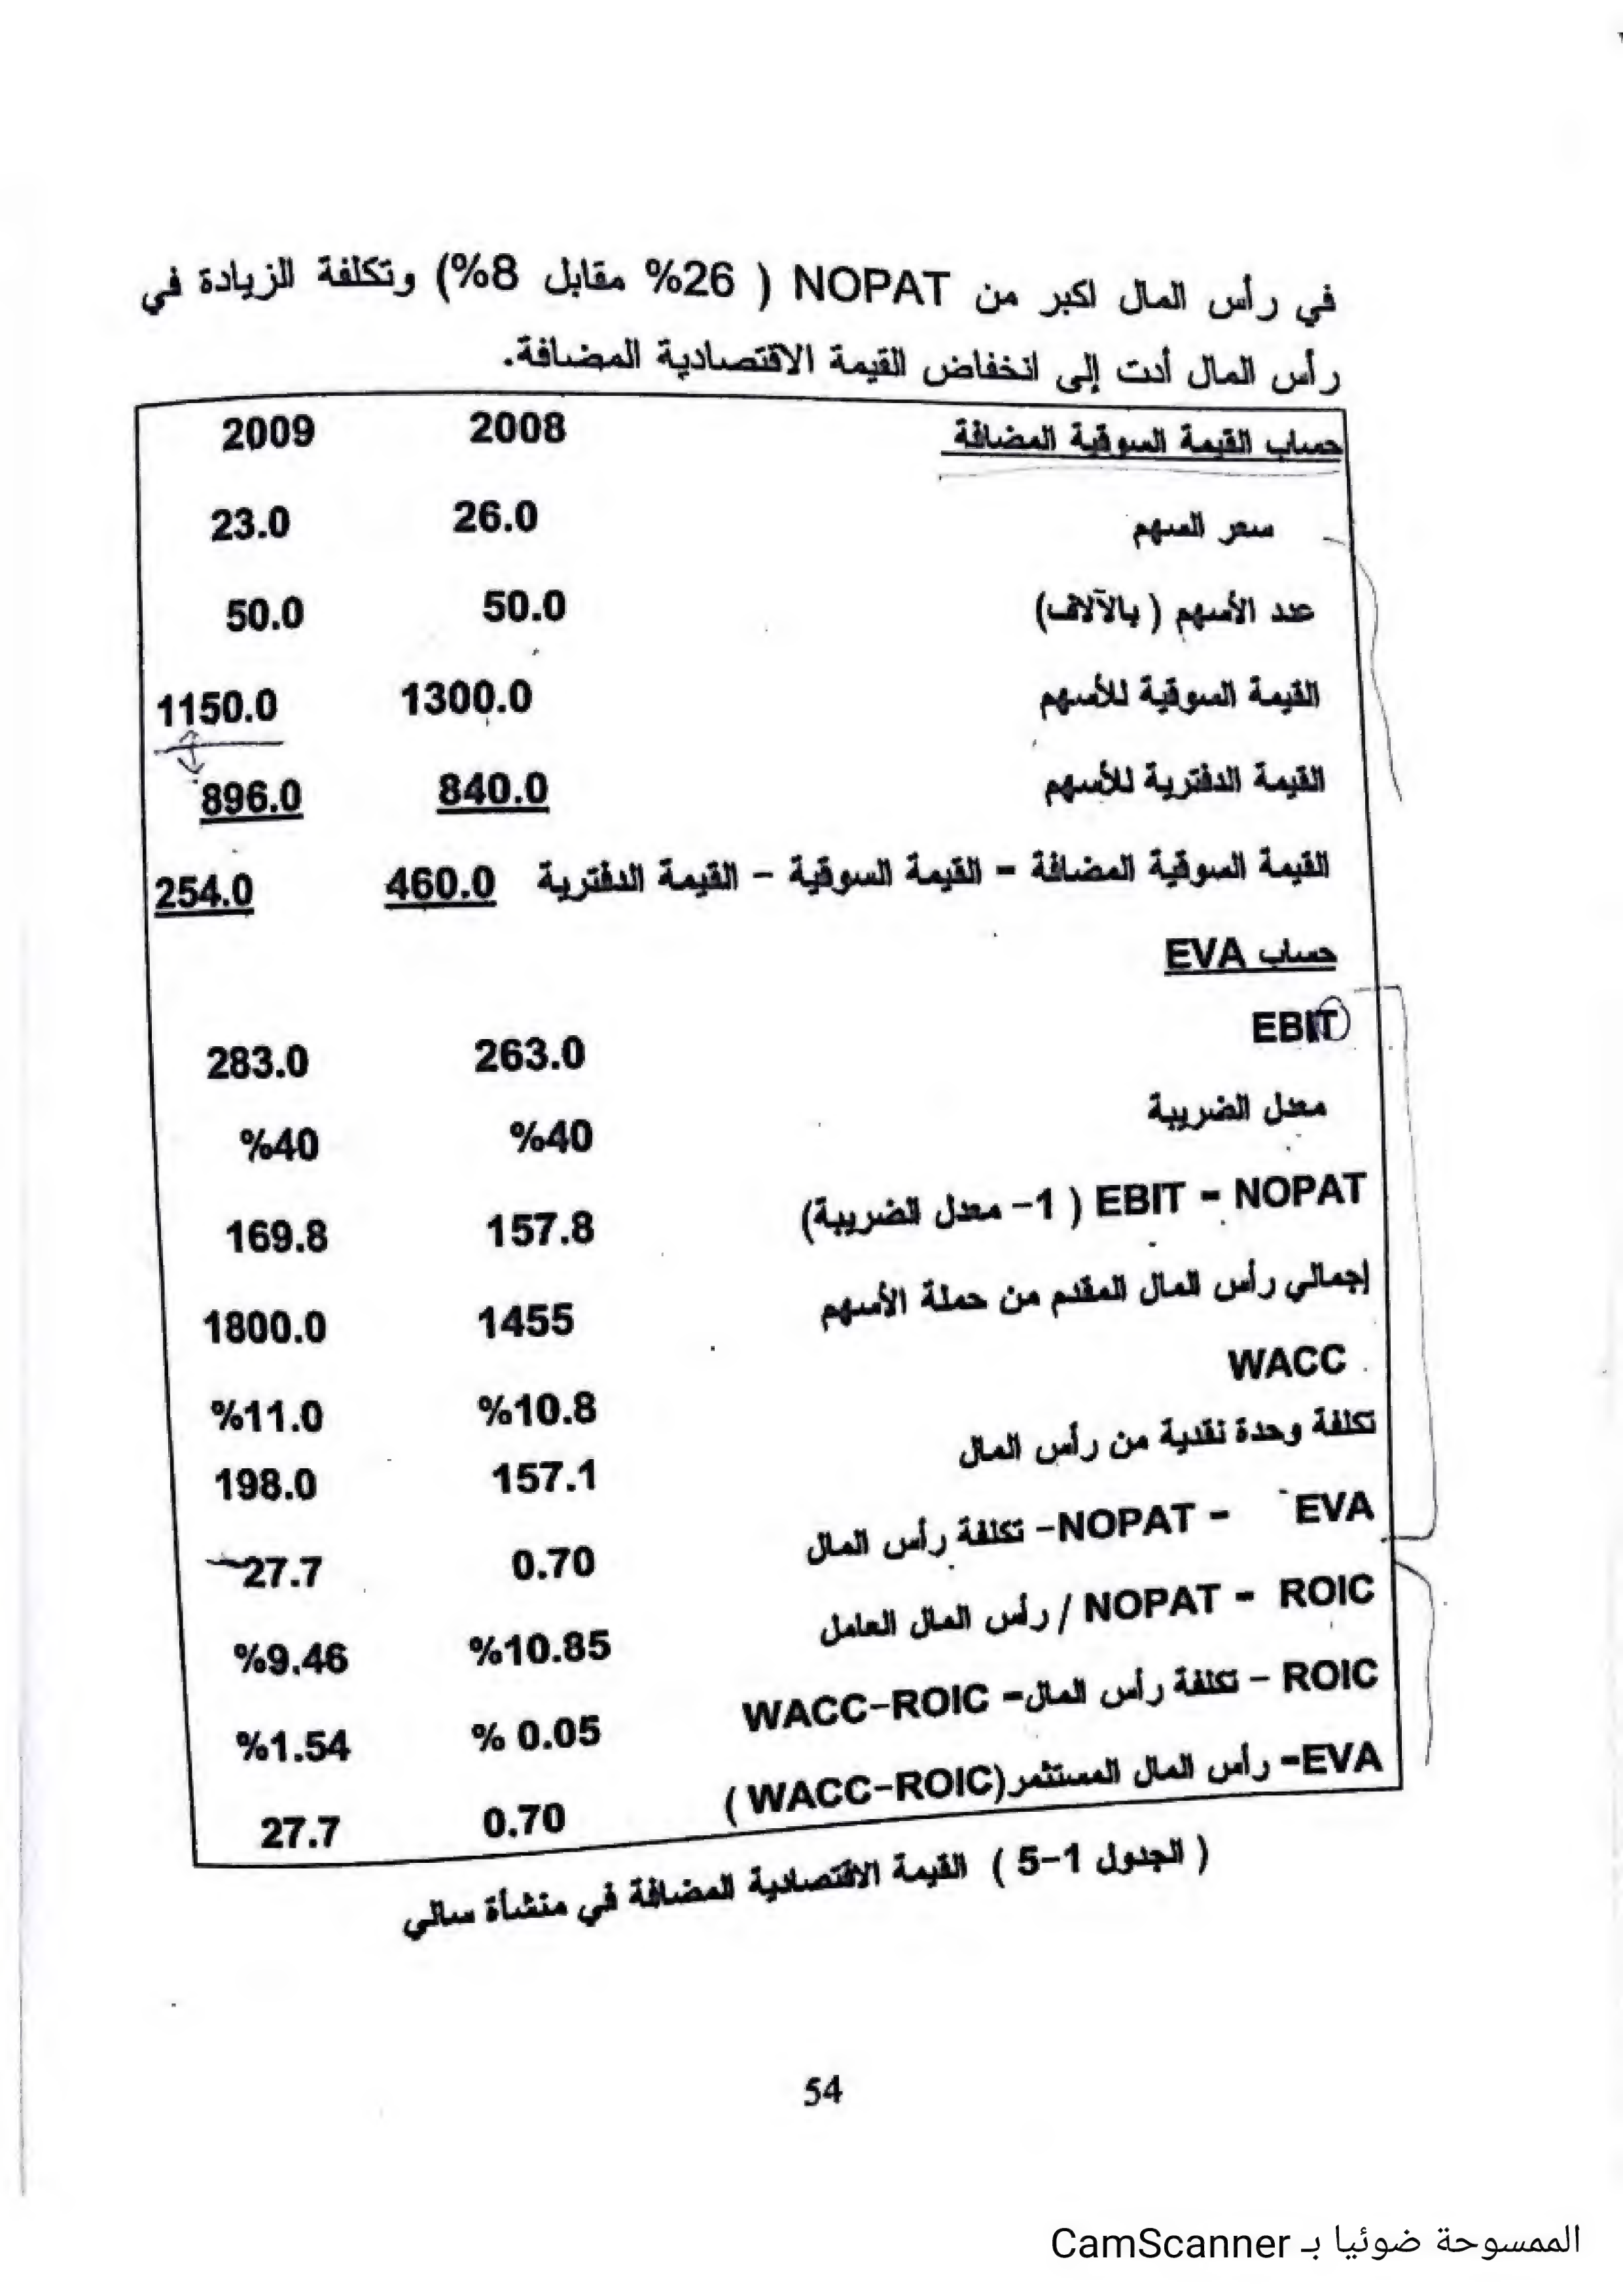 في رأس المال اكبر من NOPAT ( 26% مقابل 8%) وتكلفة الزيادة في
رأس المال أدت إلى انخفاض القيمة الاقتصادية المضافة.
حساب القيمة السوقية المضافة 2008 2009
سعر السهم 26.0 23.0
عدد الأسهم ( بالآلاف) 50.0 50.0
القيمة السوقية للأسهم 1300.0 1150.0
القيمة الدفترية للأسهم 840.0 896.0
القيمة السوقية المضافة = القيمة السوقية – القيمة الدفترية 460.0 254.0
حساب EVA
EBIT 263.0 283.0
معدل الضريبة %40 %40
NOPAT = EBIT ( 1– معدل الضريبة) 157.8 169.8
إجمالي رأس المال المقدم من حملة الأسهم 1455 1800.0
WACC %10.8 %11.0
تكلفة وحدة نقدية من رأس المال 157.1 198.0
EVA = NOPAT– تكلفة رأس المال 0.70 -27.7
ROIC = NOPAT / رأس المال العامل %10.85 %9.46
ROIC – تكلفة رأس المال= WACC–ROIC % 0.05 %1.54
EVA= رأس المال المستثمر(WACC–ROIC ) 0.70 27.7
( الجدول 1–5 ) القيمة الاقتصادية المضافة في منشأة سالي
54
الممسوحة ضوئيا بـ CamScanner